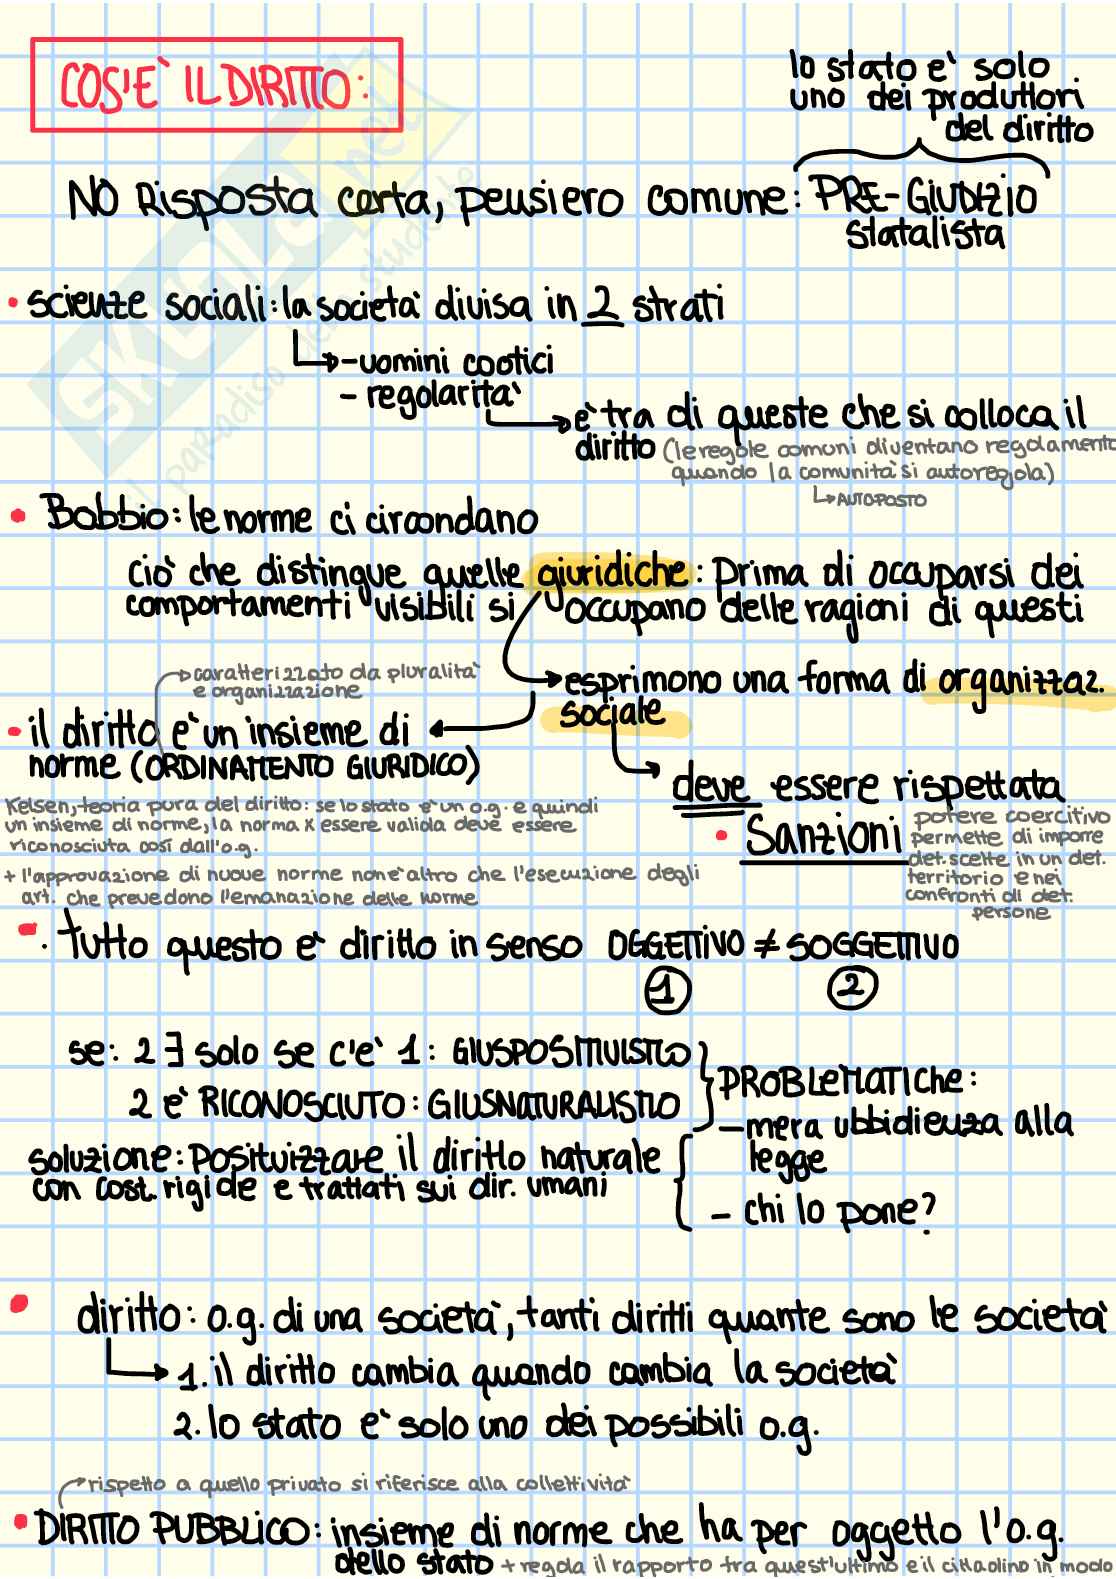 COS'È IL DIRITTO:
lo stato è solo
uno dei produttori
del diritto
NO Risposta certa, pensiero comune: PRE-GIUDIZIO
statalista
• scienze sociali: la società divisa in 2 strati
-uomini caotici
- regolarità
è tra di queste che si colloca il
diritto (le regole comuni diventano regolamento
quando la comunità si autoregola)
AUTOPOSTO
• Bobbio: le norme ci circondano
ciò che distingue quelle giuridiche: Prima di occuparsi dei
comportamenti visibili si occupano delle ragioni di questi
caratterizzato da pluralità
e organizzazione
esprimono una forma di organizzaz.
sociale
• il diritto è un insieme di
norme (ORDINAMENTO GIURIDICO)
deve essere rispettata
Kelsen, teoria pura del diritto: se lo stato è un o.g. e quindi
un insieme di norme, la norma x essere valida deve essere
riconosciuta così dall'o.g.
• Sanzioni
potere coercitivo
permette di imporre
det. scelte in un det.
territorio e nei
confronti di det.
persone
+ l'approvazione di nuove norme non è altro che l'esecuzione degli
art. che prevedono l'emanazione delle norme
. tutto questo è diritto in senso OGGETTIVO ≠ SOGGETTIVO
1 2
se: 2 ∃ solo se c'è 1: GIUSPOSITIVISTICO
2 è RICONOSCIUTO: GIUSNATURALISTICO
PROBLEMATICHE:
- mera ubbidienza alla
legge
- chi lo pone?
soluzione: Positivizzare il diritto naturale
con cost. rigide e trattati sui dir. umani
• diritto: o.g. di una società, tanti diritti quante sono le società
1. il diritto cambia quando cambia la società
2. lo stato è solo uno dei possibili o.g.
rispetto a quello privato si riferisce alla collettività
• DIRITTO PUBBLICO: insieme di norme che ha per oggetto l'o.g.
dello stato + regola il rapporto tra quest'ultimo e il cittadino in modo
SKUOLA.net
il paradiso dello studente